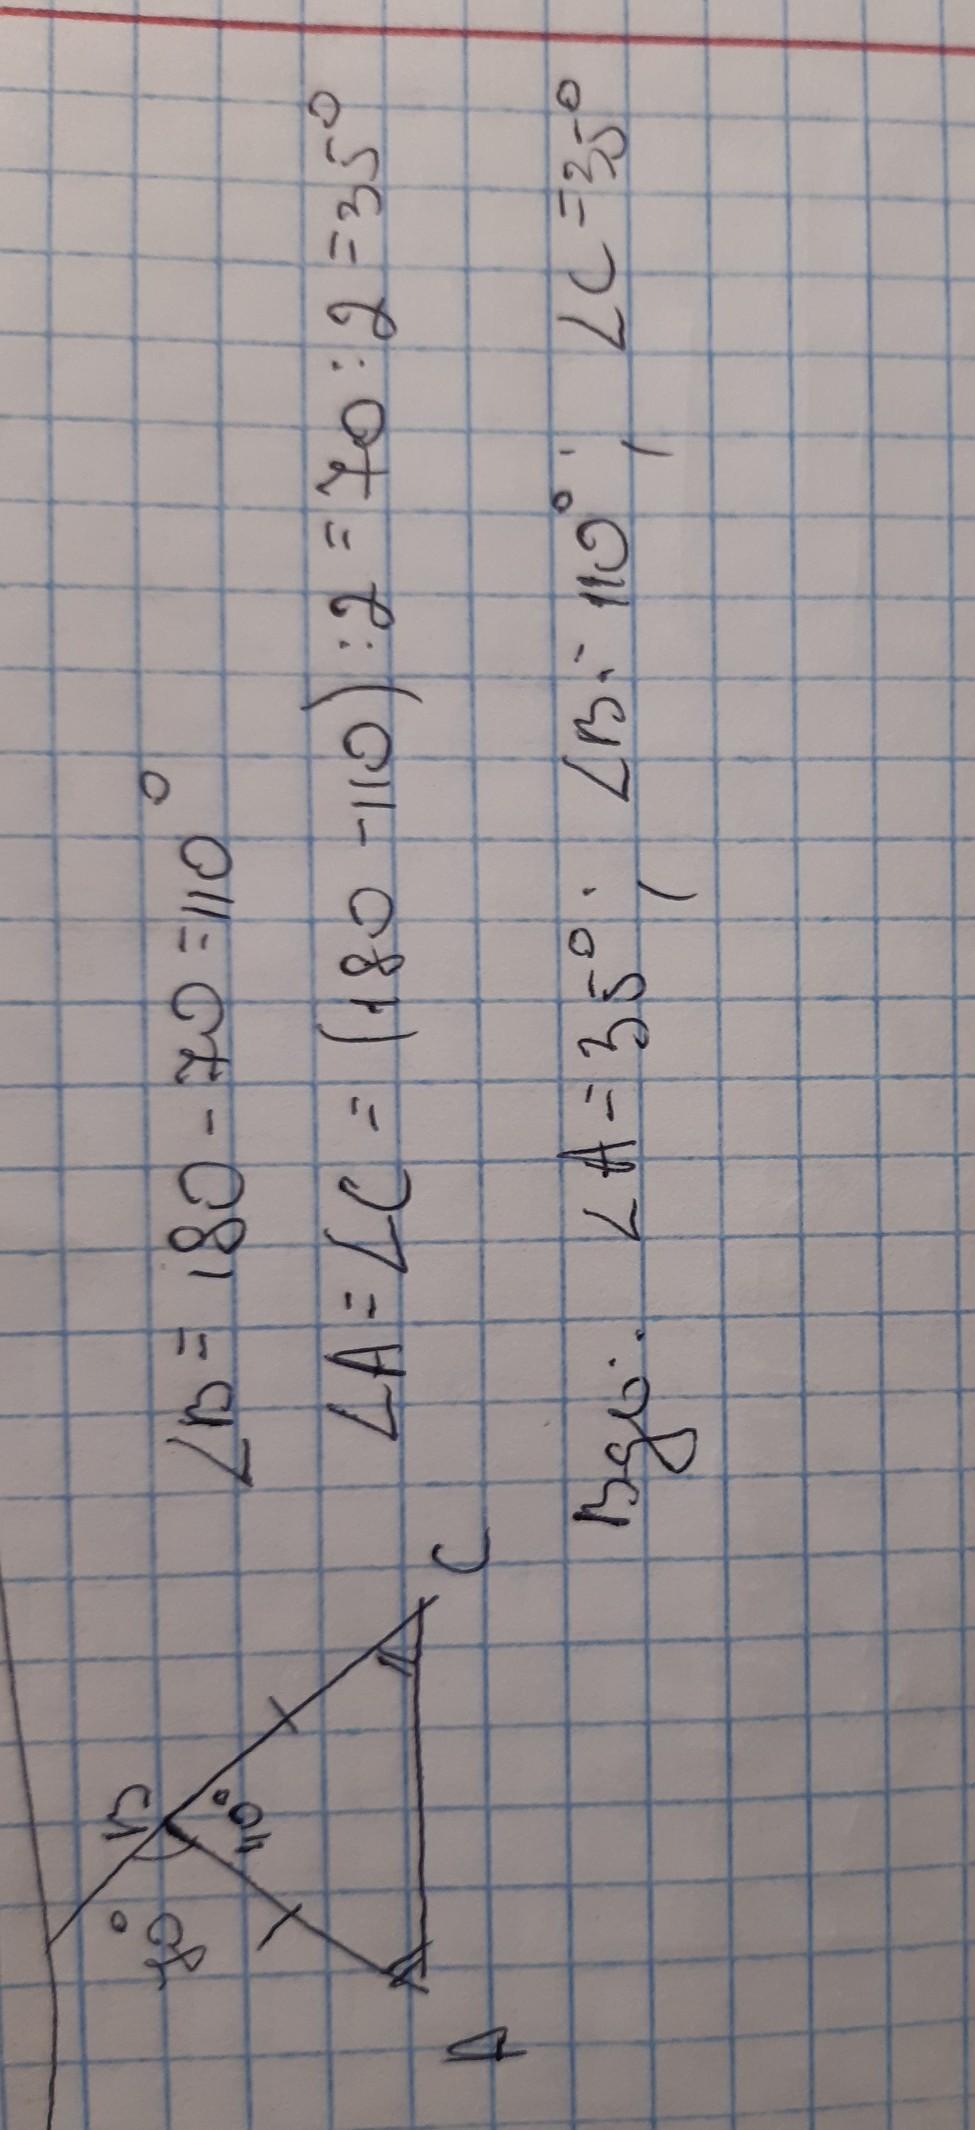 B
70°
110°
A
C
∠B = 180 - 70 = 110°
∠A = ∠C = (180 - 110) : 2 = 70 : 2 = 35°
Відп.: ∠A = 35°; ∠B = 110°; ∠C = 35°